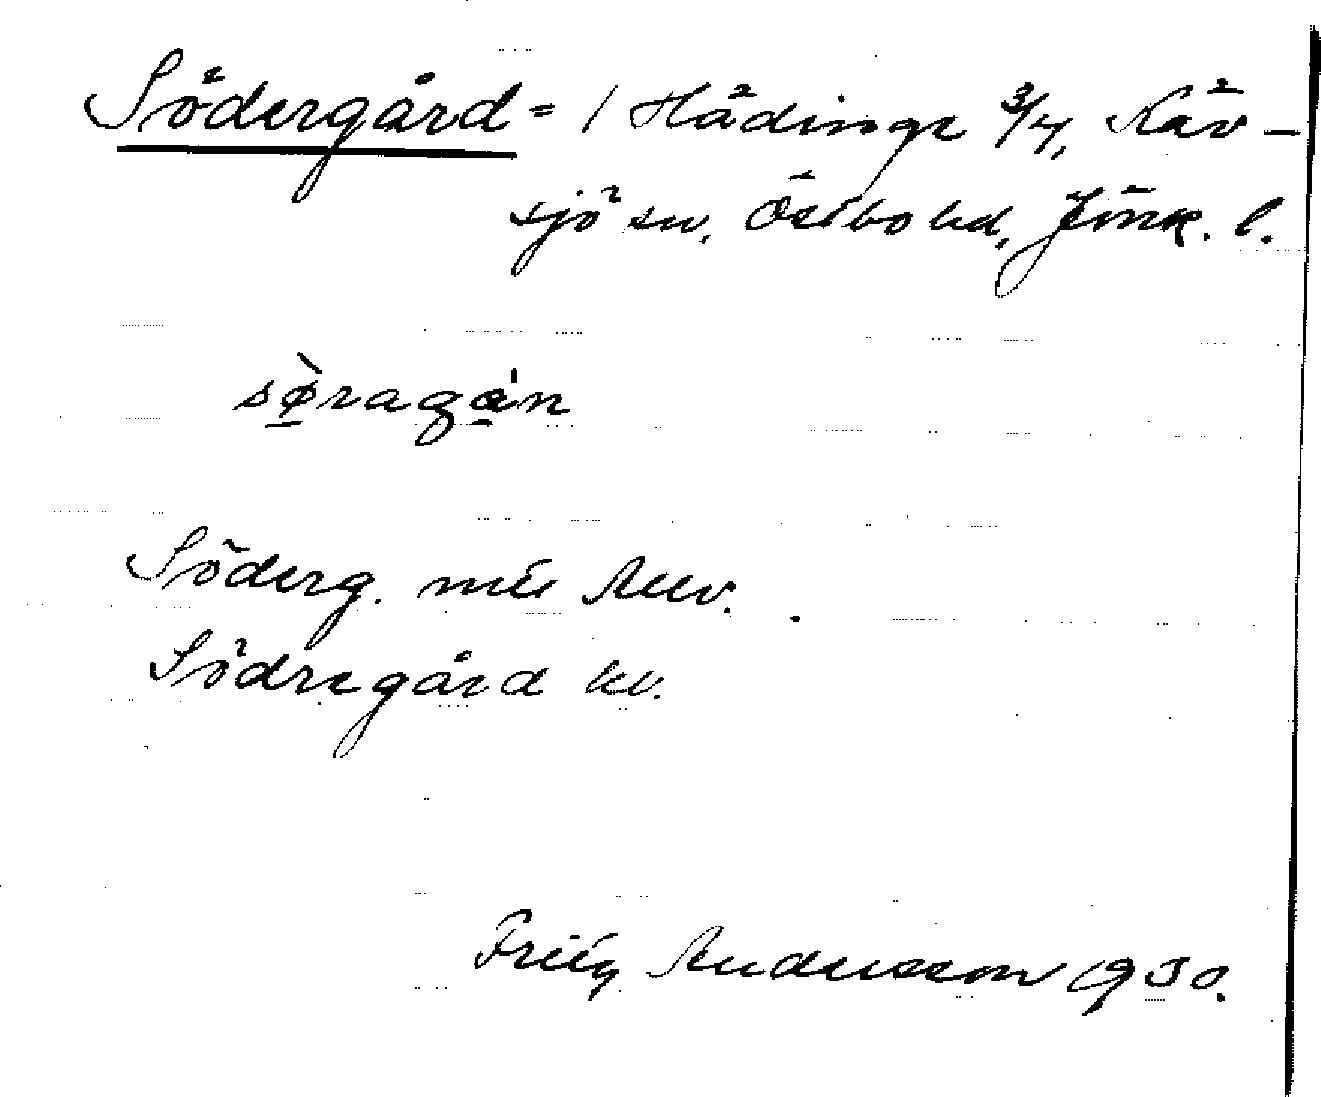 Södergård = / Hädinge 3/4, Näv-
sjö sn, Östbo hd, Jönk. l.
sø̀ragán
Söderg.
Södregård hv.
Fritz Andersson 1930.